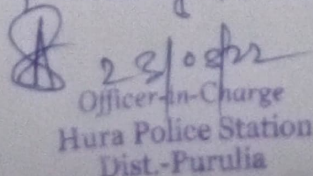 23/08/22
Officer-in-Charge
Hura Police Station
Dist.-Purulia